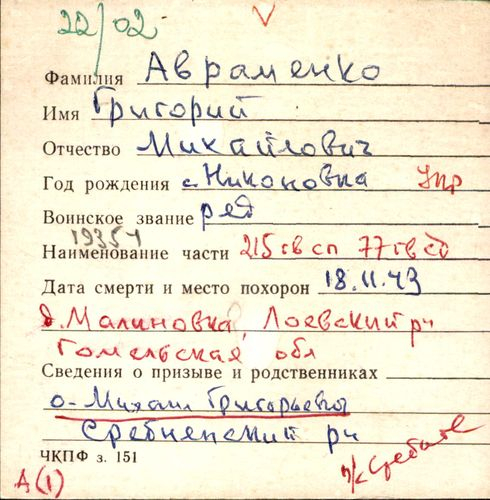 22/02 V
Фамилия Авраменко
Имя Григорий
Отчество Михайлович
Год рождения с. Никоновка
Воинское звание ряд
19354
Наименование части 215 гв сп 77 гв сд
Дата смерти и место похорон 18.11.43
д. Малиновка, Лоевский рн
Гомельская обл
Сведения о призыве и родственниках
о- Михаил Григорьевич
Сребненский рн
ЧКПФ з. 151
А(1)